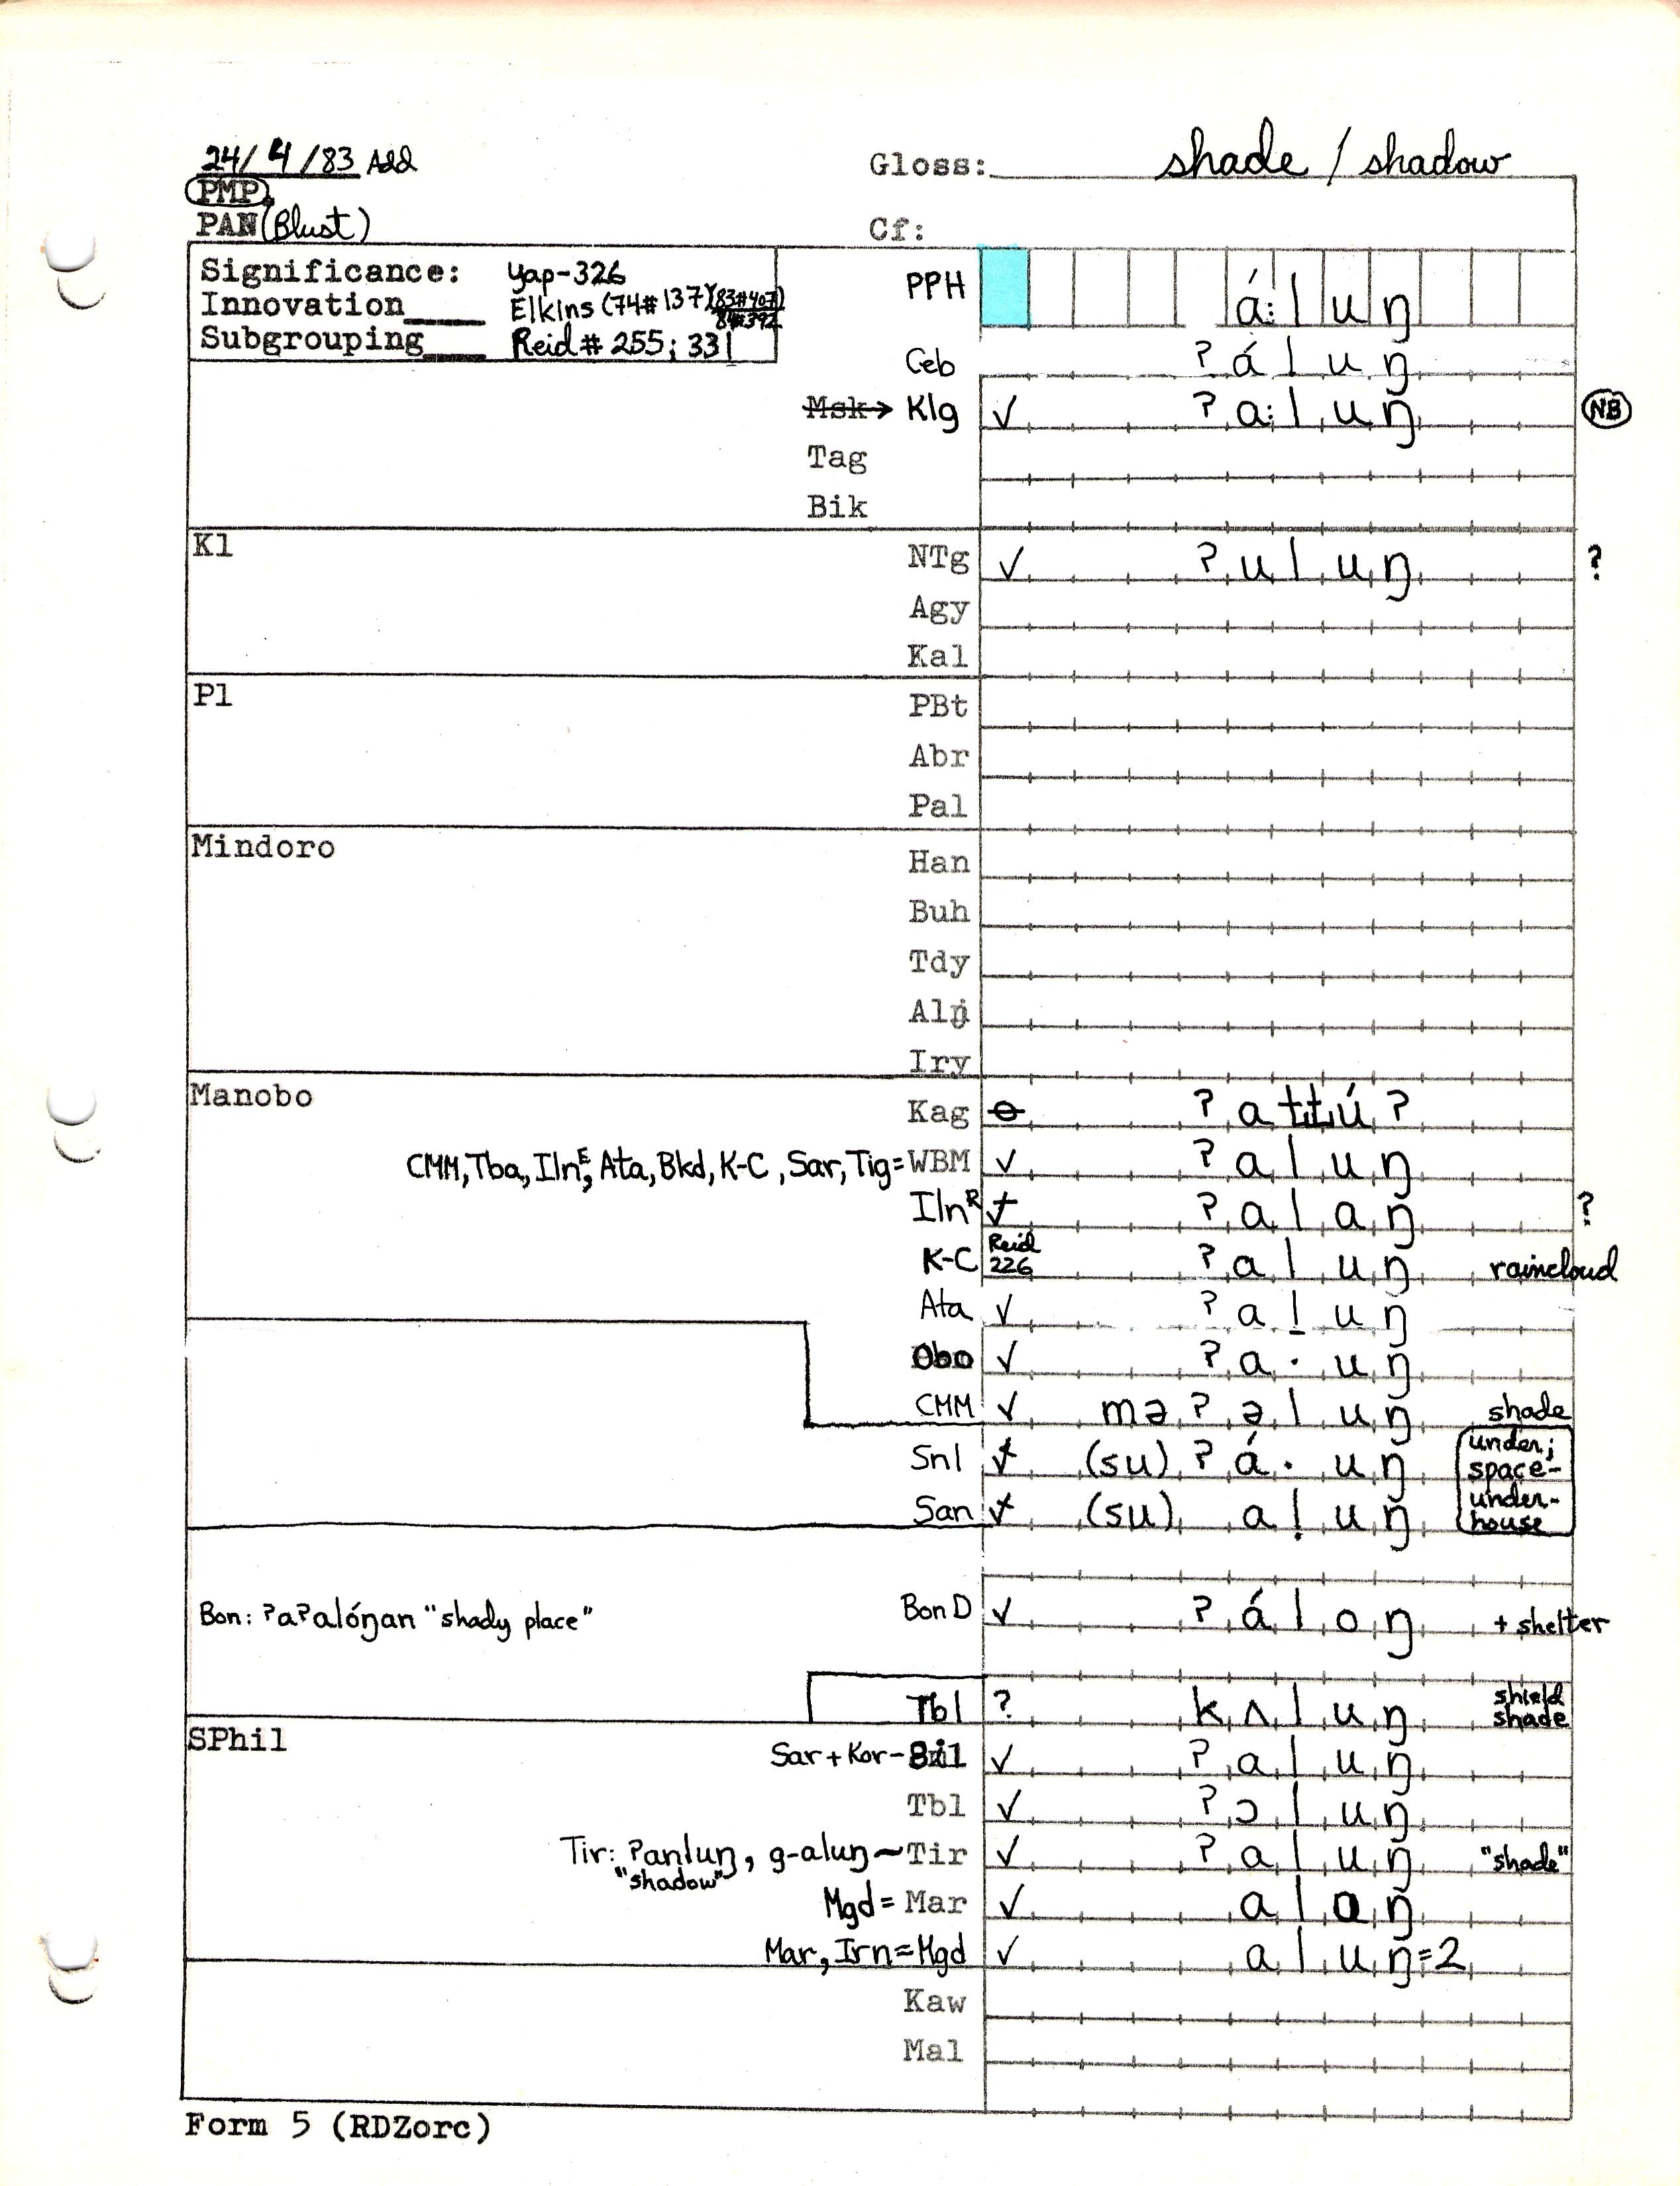 24/4/83 Add
Gloss: shade / shadow
PMP
PAN (Blust)
Cf:
Significance: Yap-326
Innovation____ Elkins (74#137)(83#407)
84#392
Subgrouping____ Reid # 255; 331
PPH á: l u ŋ
Ceb ʔ á l u ŋ
Msk → Klg ✓ ʔ a: l u ŋ NB
Tag
Bik
Kl
NTg ✓ ʔ u l u ŋ ?
Agy
Kal
Pl
PBt
Abr
Pal
Mindoro
Han
Buh
Tdy
Alŋ
Iry
Manobo
Kag ꝋ ʔ a ƚƚ ú ʔ
CMM, Tba, Iln^E, Ata, Bkd, K-C, Sar, Tig = WBM ✓ ʔ a l u ŋ
Iln^R ✓ ʔ a l a ŋ ?
K-C Reid 226 ʔ a l u ŋ raincloud
Ata ✓ ʔ a ḻ u ŋ
Obo ✓ ʔ a · u ŋ
CMM ✓ mə ʔ ə l u ŋ shade
Snl ✓ (su) ʔ á · u ŋ under; space-
San ✓ (su) a ḷ u ŋ under-house
Bon: ʔaʔalóŋan "shady place" BonD ✓ ʔ á l o ŋ + shelter
Tbl ? k ʌ l u ŋ shield shade
SPhil
Sar + Kor- Bil ✓ ʔ a l u ŋ
Tbl ✓ ʔ ɔ l u ŋ
Tir: ʔanluŋ, g-aluŋ ~ Tir ✓ ʔ a l u ŋ "shade"
"shadow"
Mgd = Mar ✓ a l o ŋ
Mar, Irn = Mgd ✓ a l u ŋ = 2
Kaw
Mal
Form 5 (RDZorc)